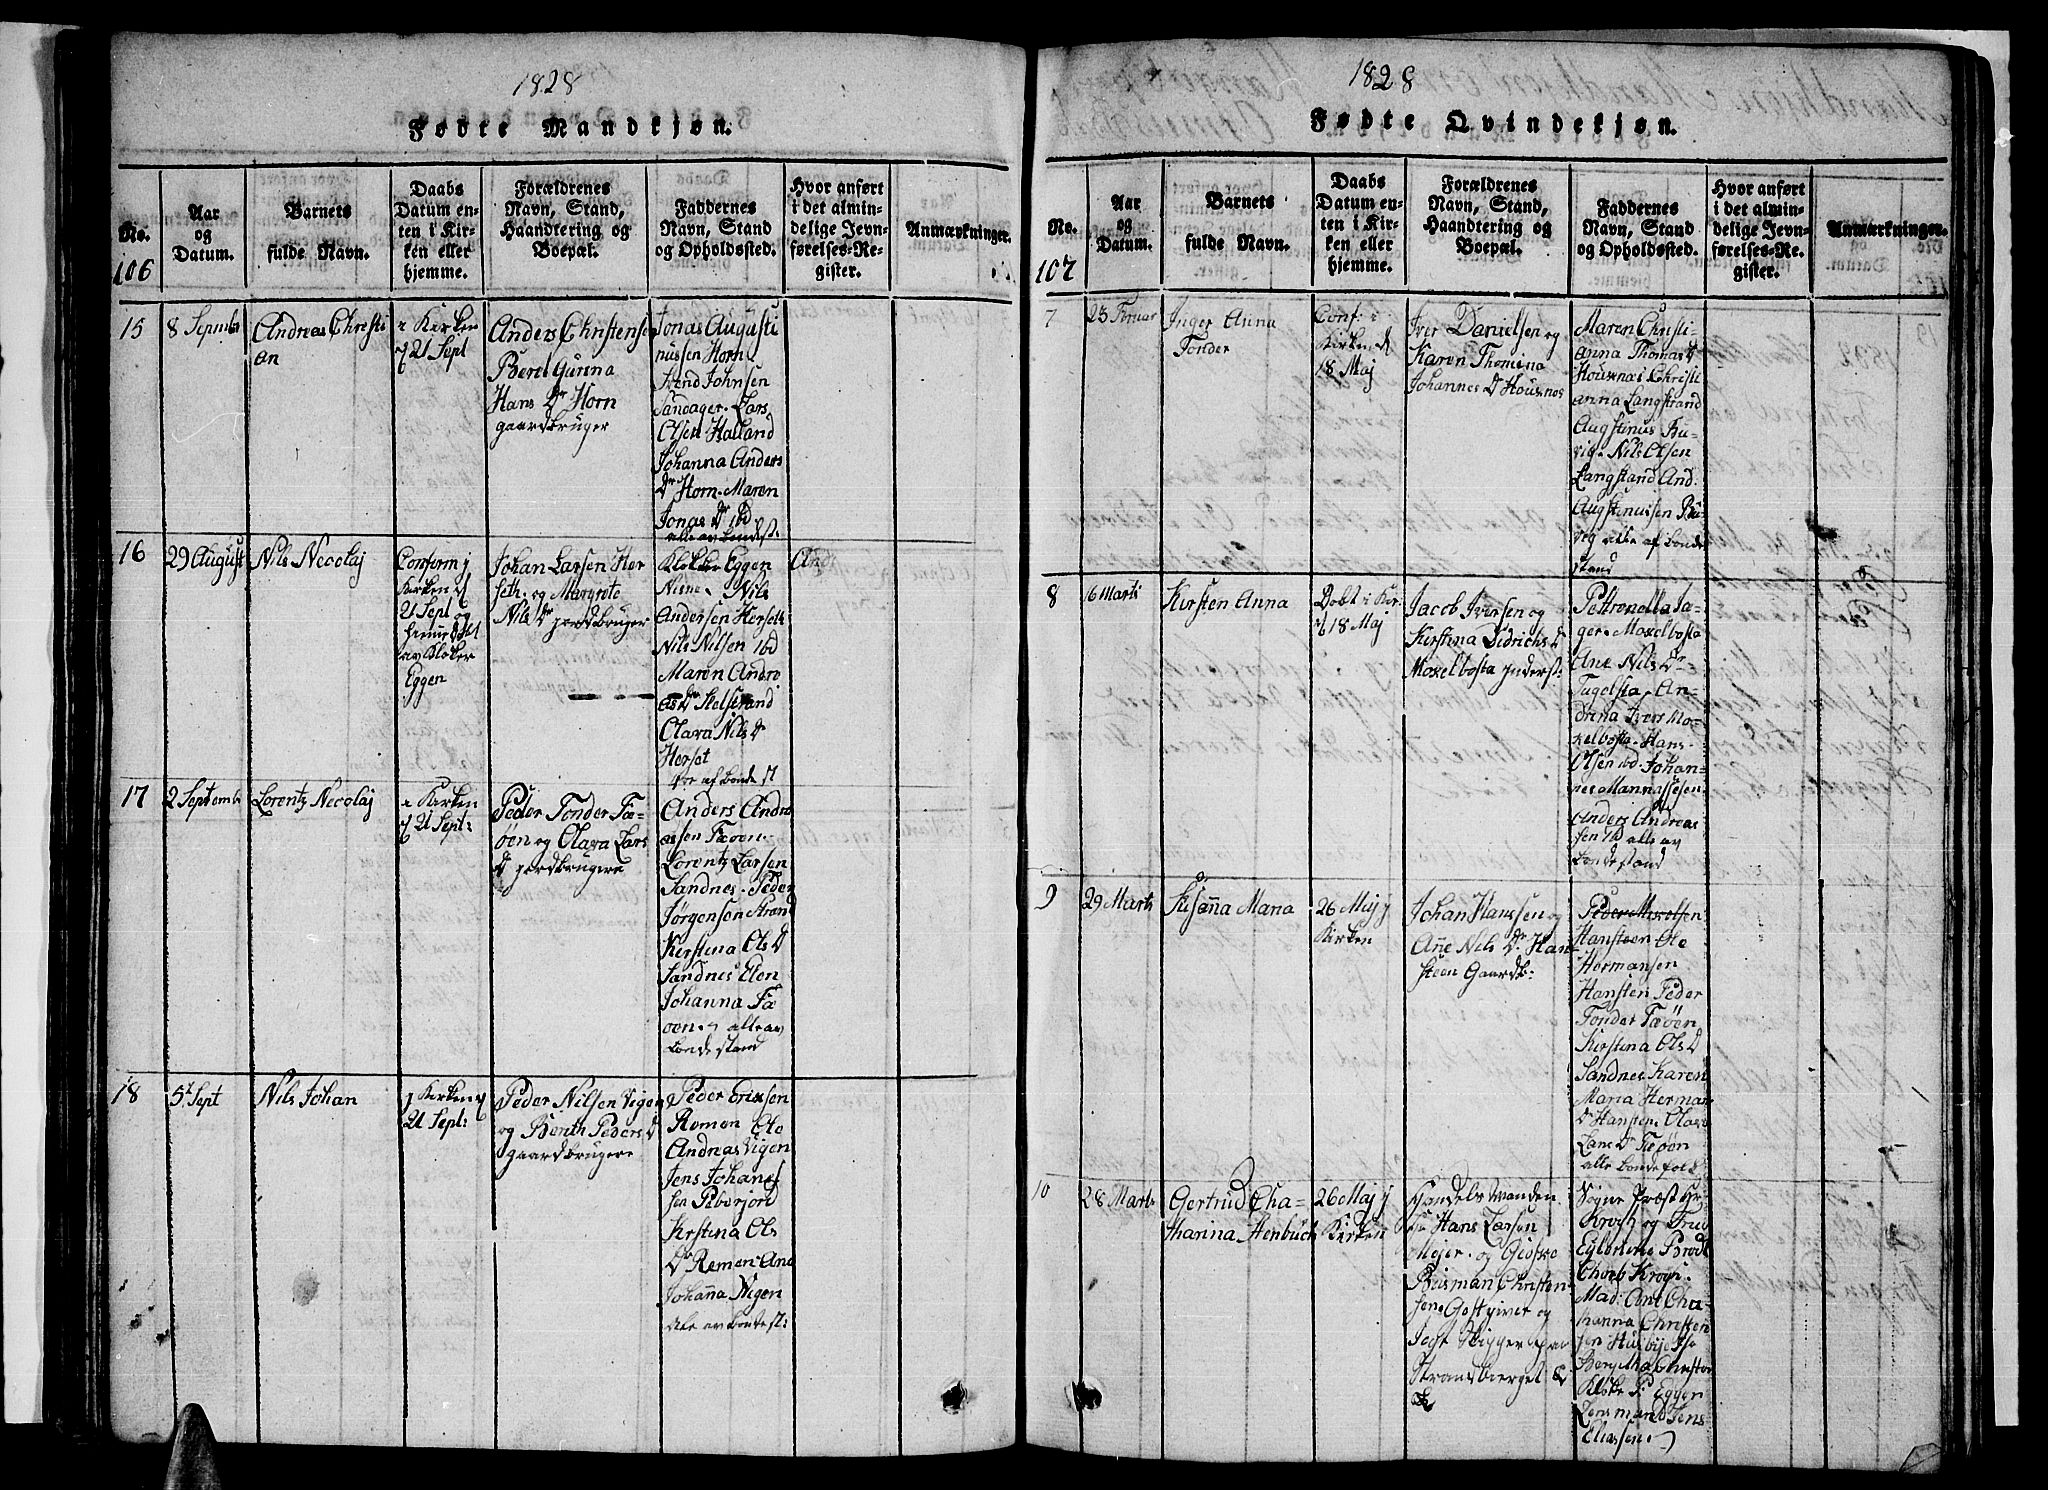 1828
Fødte Mandkjøn.
No.
106
Aar
og
Datum.
Barnets
fulde Navn.
Daabs
Datum en-
ten i Kir-
ken eller
hjemme.
Forældrenes
Navn, Stand,
Haandtering og
Boepæl.
Faddernes
Navn, Stand
og Opholdssted.
Hvor anført
i det almin-
delige Jevn-
førelses-Re-
gister.
Anmærkninger.
15
8 Septembr
Andreas Christi
an
i Kirken
d 21 Sept
Anders Christense
Beret Gurina
Hans Dr Horn
gaardbruger
Jonas Augusti
nussen Horn
Johnsen
Sandager. Lars
Olsen Halland
Johanna Anders
Dr Horn. Maren
Jonas Dr ibd
alle av bondest:
16
29 August
Nils Necolaj
Conferm j
Kirken d
21 Sept og
av Kloker
Eggen
Johan Larsen Her
seth. og Margrete
Nils Dr jordbruger
Kloker Eggen
Nils
Andersen Herseth
Nils Nilsen ibd
Maren Andre
as Dr Stelstrand
Olava Nils Dr
Herset
af bonde st
17
2 Septembr
Lorentz Necolaj
i Kirken
d 21 Sept:
Peder Tonder Fæ-
øen og Olava Lars
D jordbrugere
Anders Andre
asen Fæøen.
Lorentz Larsen
Sandnes. Peder
Jørgensen Strand
Kerstina Ols D
Sandnes Elen
Johanna Fæ
øen. alle av
bondestand
18
5t Sept
Nils Johan
i Kirken d
21 Sept:
Peder Nilsen Vigen
og Bereth Peders D
gaardbrugere
Peder Erixsen
Remen Ole
Andreas Vigen
Jens Johane
sen Peberjord
Kirstina Ols
Dr Remen. Ane
Johanna Vigen
Ale av bondest:
1828
Fødte Qvindekjøn.
No.
107
Aar
og
Datum.
Barnets
fulde Navn.
Daabs
Datum en-
ten i Kir-
ken eller
hjemme.
Forældrenes
Navn, Stand,
Haandtering og
Boepæl.
Faddernes
Navn, Stand
og Opholdssted.
Hvor anført
i det almin-
delige Jevn-
førelses-Re-
gister.
Anmærkninger.
7
23 Feruar
Inger Anna
Tonder
Conf: i
Kirken d
18 Maj
Iver Danielsen og
Karen Thomina
Johannes Dr Housnes
Maren Christi
anna Thomas D
Housnæs Christi
anna Langstrand
Augstinus Bu-
vig. Nils Olsen
Langstand And.
Augstinussen Bu-
vig alle af bonde
stand
8
16 Marts
Kirsten Anna
Dobt i Kir:
d 18 Maj
Jacob Iversen og
Kirstina Didrichs D
Moxelbosta Inderst:
Pettronella Ja-
ger. Moxelbosta
Ane Nils Dr
Tugelsta. An-
drina Ivers Mo-
xelbosta. Hans
Olsen ibd. Johan-
nes Mannassesen
Anders Andreas
sen ibd alle av
bondestand
9
29 Marts
Susanna Maria
26 Maj j
Kirken
Johan Hanssen og
Ane Nils Dr Han
steen Gaardb:
Peder Mixelsen
Hansteen Ole
Hermansen
Hansten Peder
Tonder Fæøen
Kirstina Ols D
Sandnes Karen
Maria Herman
Dr Hansten. Olava
Lars Dr Fæøen
alle bondefolk
10
28 Marts
Gertrud Cha-
tharina Stenbuch
26 Maj j
Kirken
Handelsmanden
Hans Larsen
Mejer. og
Busman Christen
sen. Gestgiver og
Strandbierget
Sogne Præst Hr
Krog og Frue
Broch
Krog.
Mad: Ane Cha-
tharina Christen
sen Husbye.
Kloke P: Egger
Lensmand Jens
Eliassen.